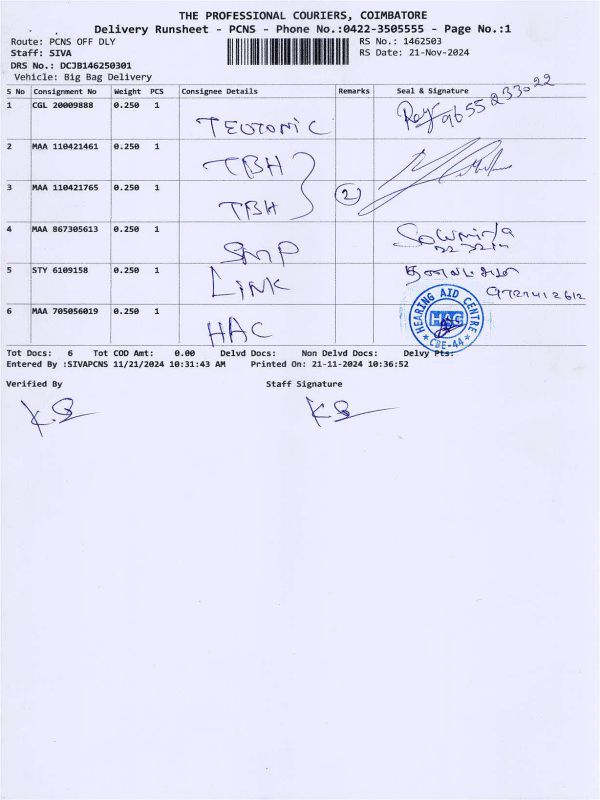 THE PROFESSIONAL COURIERS, COIMBATORE
Delivery Runsheet - PCNS - Phone No.:0422-3505555 - Page No.:1
Route: PCNS OFF DLY
Staff: SIVA
DRS No.: DCJB146250301
Vehicle: Big Bag Delivery
RS No.: 1462503
RS Date: 21-Nov-2024
S No Consignment No Weight PCS Consignee Details Remarks Seal & Signature
1 CGL 20009888 0.250 1 TEUTONIC 9655233022
2 MAA 110421461 0.250 1 TBH
3 MAA 110421765 0.250 1 TBH 2
4 MAA 867305613 0.250 1 SMP Sowmiya
5 STY 6109158 0.250 1 LINK
6 MAA 705056019 0.250 1 HAC HEARING AID CENTRE HAC CBE-44
Tot Docs: 6 Tot COD Amt: 0.00 Delvd Docs: Non Delvd Docs: Delvy Pts:
Entered By :SIVAPCNS 11/21/2024 10:31:43 AM Printed On: 21-11-2024 10:36:52
Verified By Staff Signature